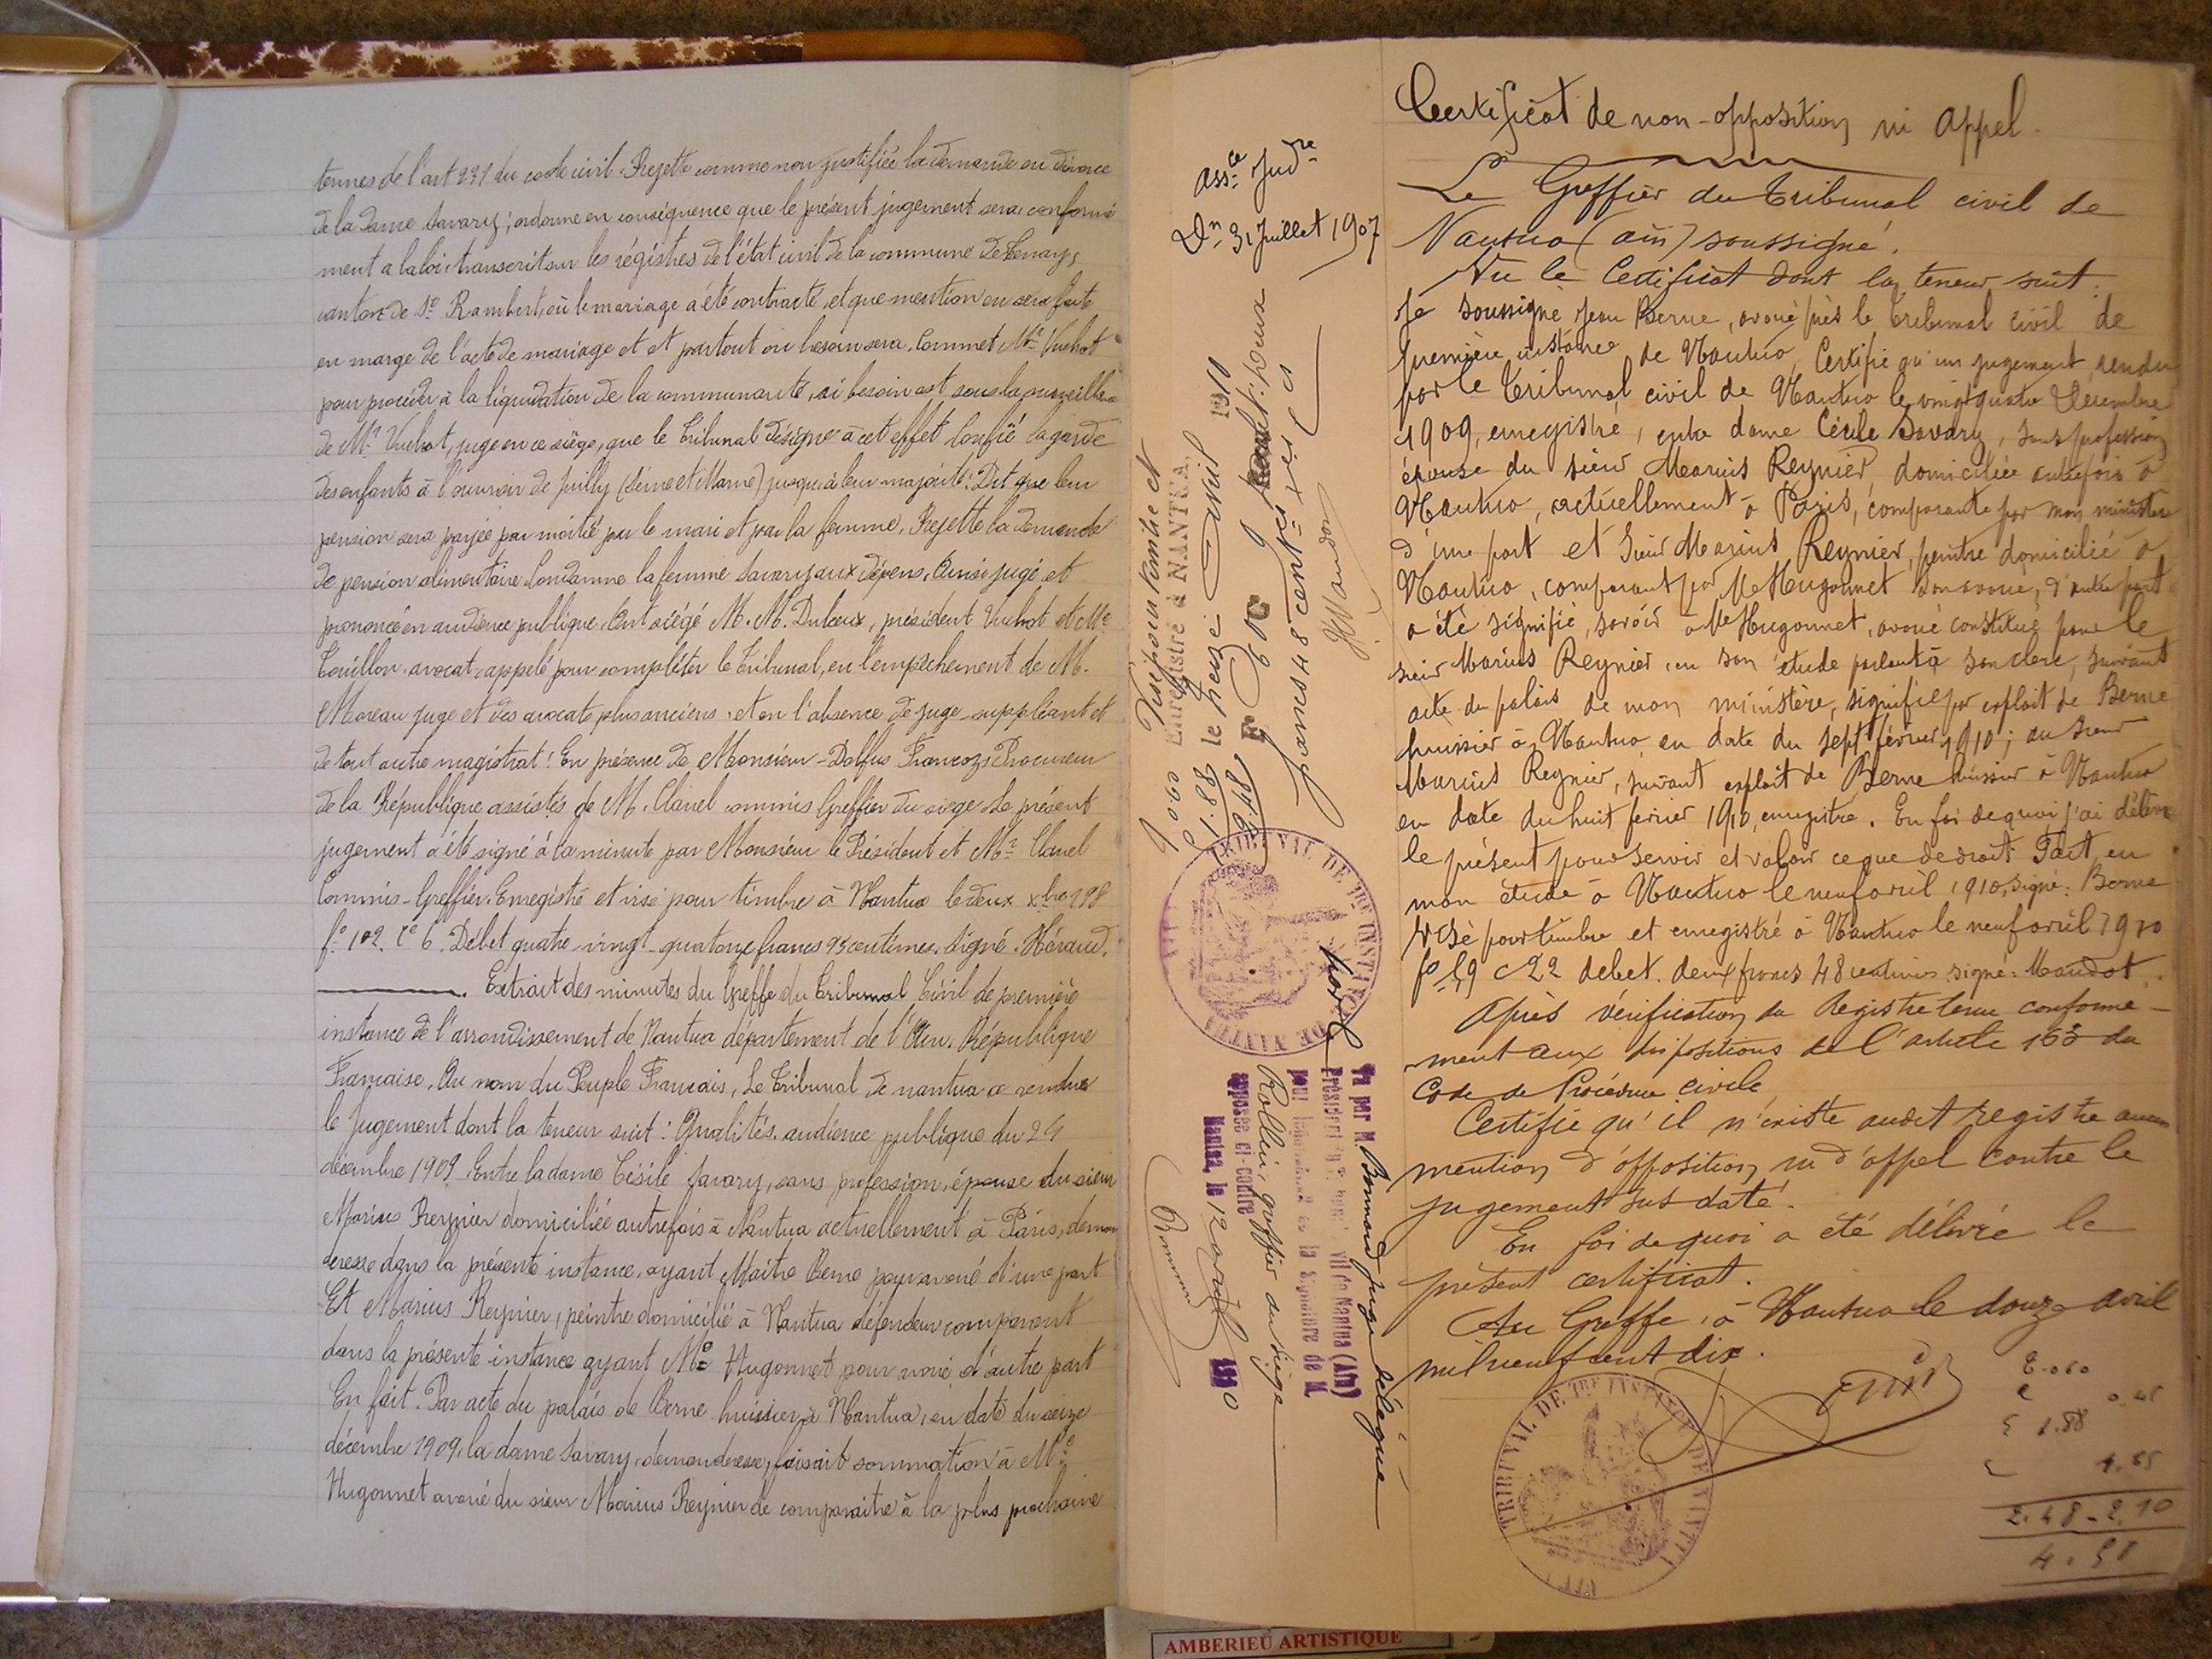 termes de l'art 231 du code civil. Rejette comme non justifiée la demande en divorce
de la dame Savary; ordonne en conséquence que le présent jugement sera, conformé
ment a la loi, transcrit sur les régistres de l'état civil de la commune de Tenay,
canton de St Rambert, où le mariage a été contracté, et que mention en sera faite
en marge de l'acte de mariage et et partout où besoin sera. Commet Me Vuchot
pour procéder à la liquidation de la communauté, si besoin est sous la surveillance
de Mr Vuchot, juge en ce siège, que le Tribunal désigne à cet effet. Confie la garde
des enfants à l'ouvroir de Juilly (Seine et Marne) jusqu'à leur majorité. Dit que leur
pension sera payée par moitié par le mari et par la femme. Rejette la demande
de pension alimentaire. Condamne la femme Savary aux dépens. Ainsi jugé et
prononcé en audience publique. Ont siégé M. M. Duleux, président Vuchot et Me
Touillon, avocat, appelé pour compléter le Tribunal, en l'empêchement de M.
Moreau juge et des avocats plus anciens, et en l'absence de juge-suppléant et
de tout autre magistrat! En présence de Monsieur - Dolfus Francoz, Procureur
de la République assistés de M. Clanel commis Greffier du siège. Le présent
jugement a été signé à la minute par Monsieur le Président et Mr Clanel
Commis-Greffier. Enregistré et visé pour timbre à Nantua le deux xbre 198
fo 102. Ce 6. Débet quatre-vingt-quatorze francs 95 centimes. Signé. Héraud.
Extrait des minutes du Greffe du Tribunal Civil de première
instance de l'arrondissement de Nantua département de l'Ain. République
Francaise. Au nom du Peuple Francais. Le Tribunal de nantua a rendu
le Jugement dont la teneur suit: Qualités. audience publique du 24
décembre 1909. Entre la dame Césile Savary, sans profession, épouse du sieur
Marius Reynier domiciliée autrefois à Nantua actuellement à Paris, deman
deresse dans la présente instance, ayant Maître Berne pour avoué d'une part
Et Marius Reynier, peintre domicilié à Nantua défendeur comparant
dans la présente instance ayant Me Hugonnet pour avoué d'autre part
En fait. Par acte du palais de Berne huissier à Nantua, en date du seize
décembre 1909, la dame Savary, demanderesse, faisait sommation à Me
Hugonnet avoué du sieur Marius Reynier de comparaitre à la plus prochaine
Assce Judre
Dn 31 Juillet 1907
Visé pour timbre et
Enregistré à NANTUA,
le treize Avril 1910
Fo 59 C 9
deux
francs 48 centes
Mandon
0.60
1.88
2.48
Vu par M. Bonnand juge délégué
Président du Tribunal civil de Nantua (Ain)
pour légalisation de la Signature de M.
Rollin, greffier du siège
apposée ci-contre
Nantua, le 12 avril 1910
Bonnand
Certificat de non-opposition ni appel.
Le Greffier du Tribunal civil de
Nantua (ain) soussigné.
Vu le Certificat dont la teneur suit:
Je soussigné Jean Berne, avoué près le tribunal civil de
première instance de Nantua, Certifie qu'un jugement, rendu
par le Tribunal civil de Nantua le vingt quatre Décembre
1909, enregistré, entre dame Cécile Savary, sans profession
épouse du sieur Marius Reynier, domiciliée autrefois à
Nantua, actuellement à Paris, comparante par mon ministère
d'une part et Sieur Marius Reynier, peintre domicilié à
Nantua, comparant par Me Hugonnet son avoué, d'autre part
a été signifié, savoir à Me Hugonnet, avoué constitué pour le
sieur Marius Reynier, en son étude parlant à son clerc, suivant
acte du palais de mon ministère, signifié par exploit de Berne
huissier à Nantua en date du sept février 1910; au sieur
Marius Reynier, suivant exploit de Berne huissier à Nantua
en date du huit février 1910, enregistré. En foi de quoi j'ai délivré
le présent pour servir et valoir ce que de droit. Fait en
mon étude à Nantua le neuf avril 1910, signé: Berne
Visé pour timbre et enregistré à Nantua le neuf avril 1910
fo 59 c 22 debet. deux francs 48 centimes signé: Mandot.
Après vérification du Registre tenu conforme-
ment aux dispositions de l'article 163 du
Code de Procédure civile,
Certifie qu'il n'existe audit registre aucune
mention d'opposition, ni d'appel contre le
jugement sus daté.
En foi de quoi a été délivré le
présent certificat.
Au Greffe, à Nantua le douze avril
mil neuf cent dix.
0.60
1.88
2.48 - 2.10
4.58
TRIBUNAL DE 1RE INSTANCE DE NANTUA
AMBERIEU ARTISTIQUE